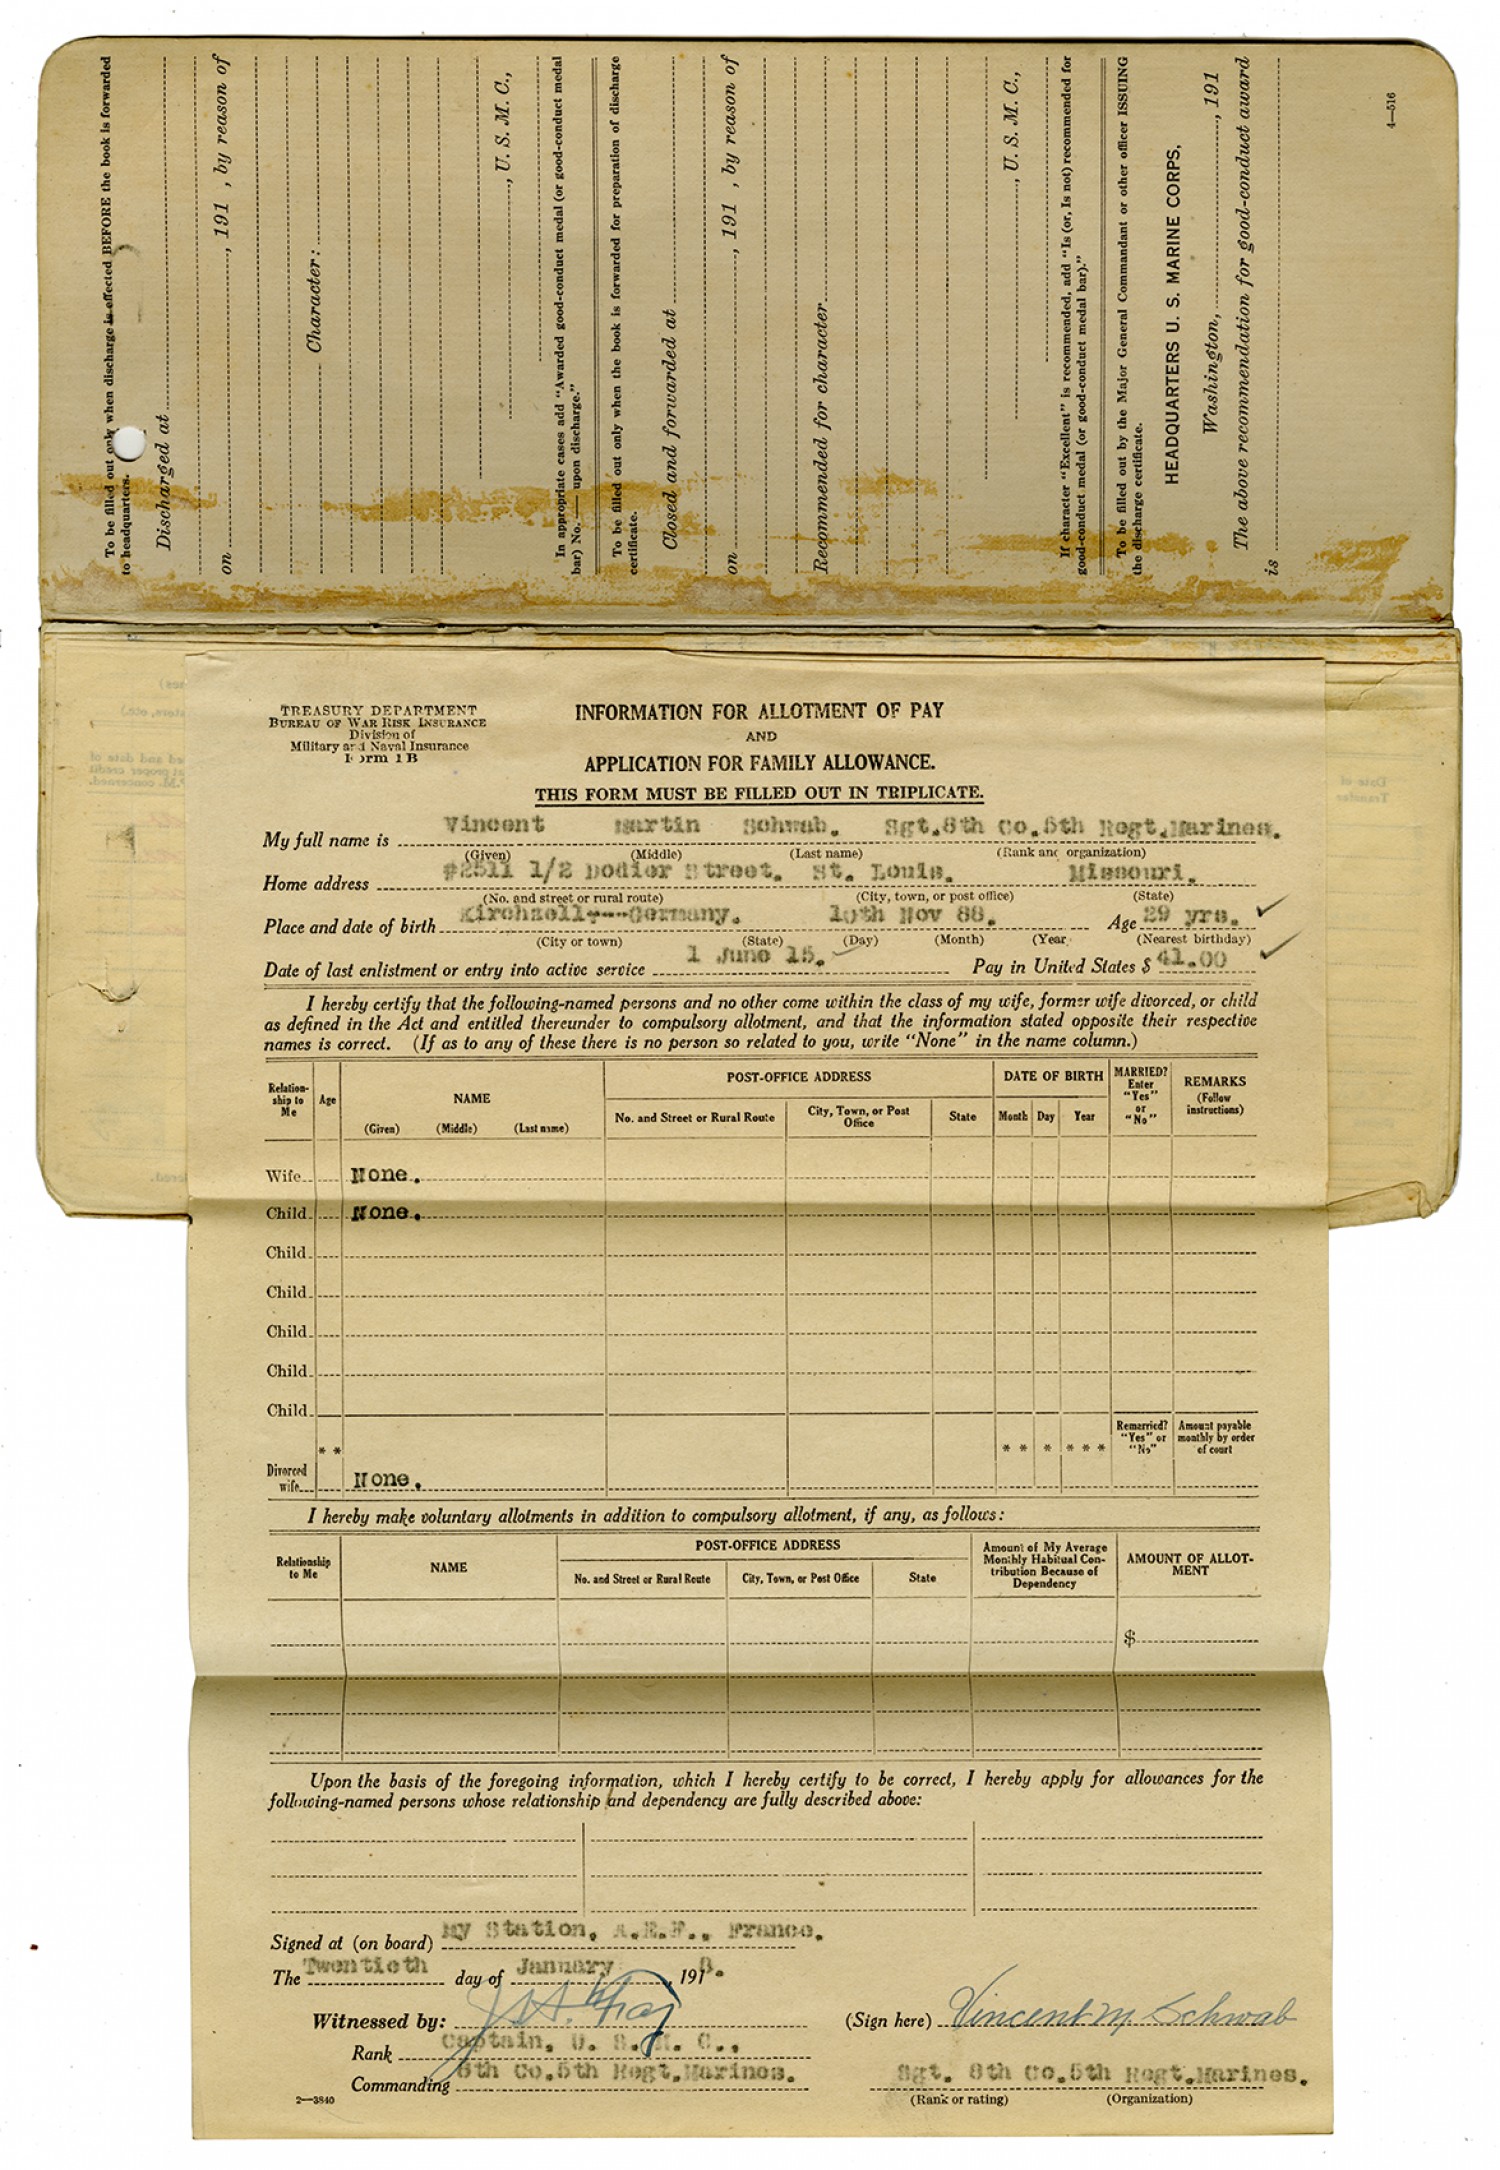 To be filled out only when discharge is effected BEFORE the book is forwarded
to headquarters.
Discharged at
on , 191 , by reason of
Character:
, U. S. M. C.,
In appropriate cases add "Awarded good-conduct medal (or good-conduct medal
bar) No. —— upon discharge."
To be filled out only when the book is forwarded for preparation of discharge
certificate.
Closed and forwarded at
on , 191 , by reason of
Recommended for character
, U. S. M. C.,
If character "Excellent" is recommended, add "Is (or, Is not) recommended for
good-conduct medal (or good-conduct medal bar)."
To be filled out by the Major General Commandant or other officer ISSUING
the discharge certificate.
HEADQUARTERS U. S. MARINE CORPS,
Washington, , 191
The above recommendation for good-conduct award
is
4—516
TREASURY DEPARTMENT
BUREAU OF WAR RISK INSURANCE
Division of
Military and Naval Insurance
Form 1B
INFORMATION FOR ALLOTMENT OF PAY
AND
APPLICATION FOR FAMILY ALLOWANCE.
THIS FORM MUST BE FILLED OUT IN TRIPLICATE.
My full name is Vincent Martin Schwab. Sgt.8th Co.5th Regt.Marines.
(Given) (Middle) (Last name) (Rank and organization)
Home address #2511 1/2 Dodier Street. St. Louis. Missouri.
(No. and street or rural route) (City, town, or post office) (State)
Place and date of birth Kirchzell---Germany. 10th Nov 88. Age 29 yrs.
(City or town) (State) (Day) (Month) (Year) (Nearest birthday)
Date of last enlistment or entry into active service 1 June 15. Pay in United States $ 41.00
I hereby certify that the following-named persons and no other come within the class of my wife, former wife divorced, or child
as defined in the Act and entitled thereunder to compulsory allotment, and that the information stated opposite their respective
names is correct. (If as to any of these there is no person so related to you, write "None" in the name column.)
Relation-
ship to
Me
Age
NAME
(Given) (Middle) (Last name)
POST-OFFICE ADDRESS
No. and Street or Rural Route
City, Town, or Post
Office
State
DATE OF BIRTH
Month Day Year
MARRIED?
Enter
"Yes"
or
"No"
REMARKS
(Follow
instructions)
Wife None.
Child None.
Child
Child
Child
Child
Child
Remarried?
"Yes" or
"No"
Amount payable
monthly by order
of court
* * * * * * * *
Divorced
wife None.
I hereby make voluntary allotments in addition to compulsory allotment, if any, as follows:
Relationship
to Me
NAME
POST-OFFICE ADDRESS
No. and Street or Rural Route
City, Town, or Post Office
State
Amount of My Average
Monthly Habitual Con-
tribution Because of
Dependency
AMOUNT OF ALLOT-
MENT
$
Upon the basis of the foregoing information, which I hereby certify to be correct, I hereby apply for allowances for the
following-named persons whose relationship and dependency are fully described above:
Signed at (on board) My Station, A.E.F., France.
The Twentieth day of January , 1918.
Witnessed by:
(Sign here) Vincent M. Schwab
Rank Captain, U. S. M. C.,
Commanding 8th Co.5th Regt.Marines.
Sgt. 8th Co.5th Regt.Marines.
(Rank or rating) (Organization)
2—3840